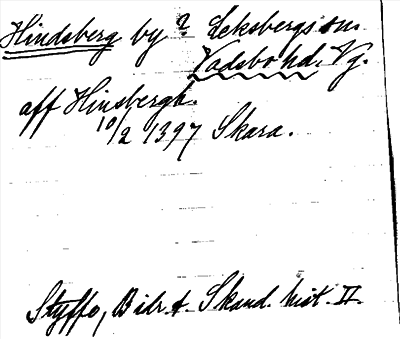 Hindsberg by? Leksbergs sn.
Vadsbo hd. Vg.
aff Hinsbergh.
10/2 1397 Skara.
Styffe, Bidr. t. Skand. hist. II.